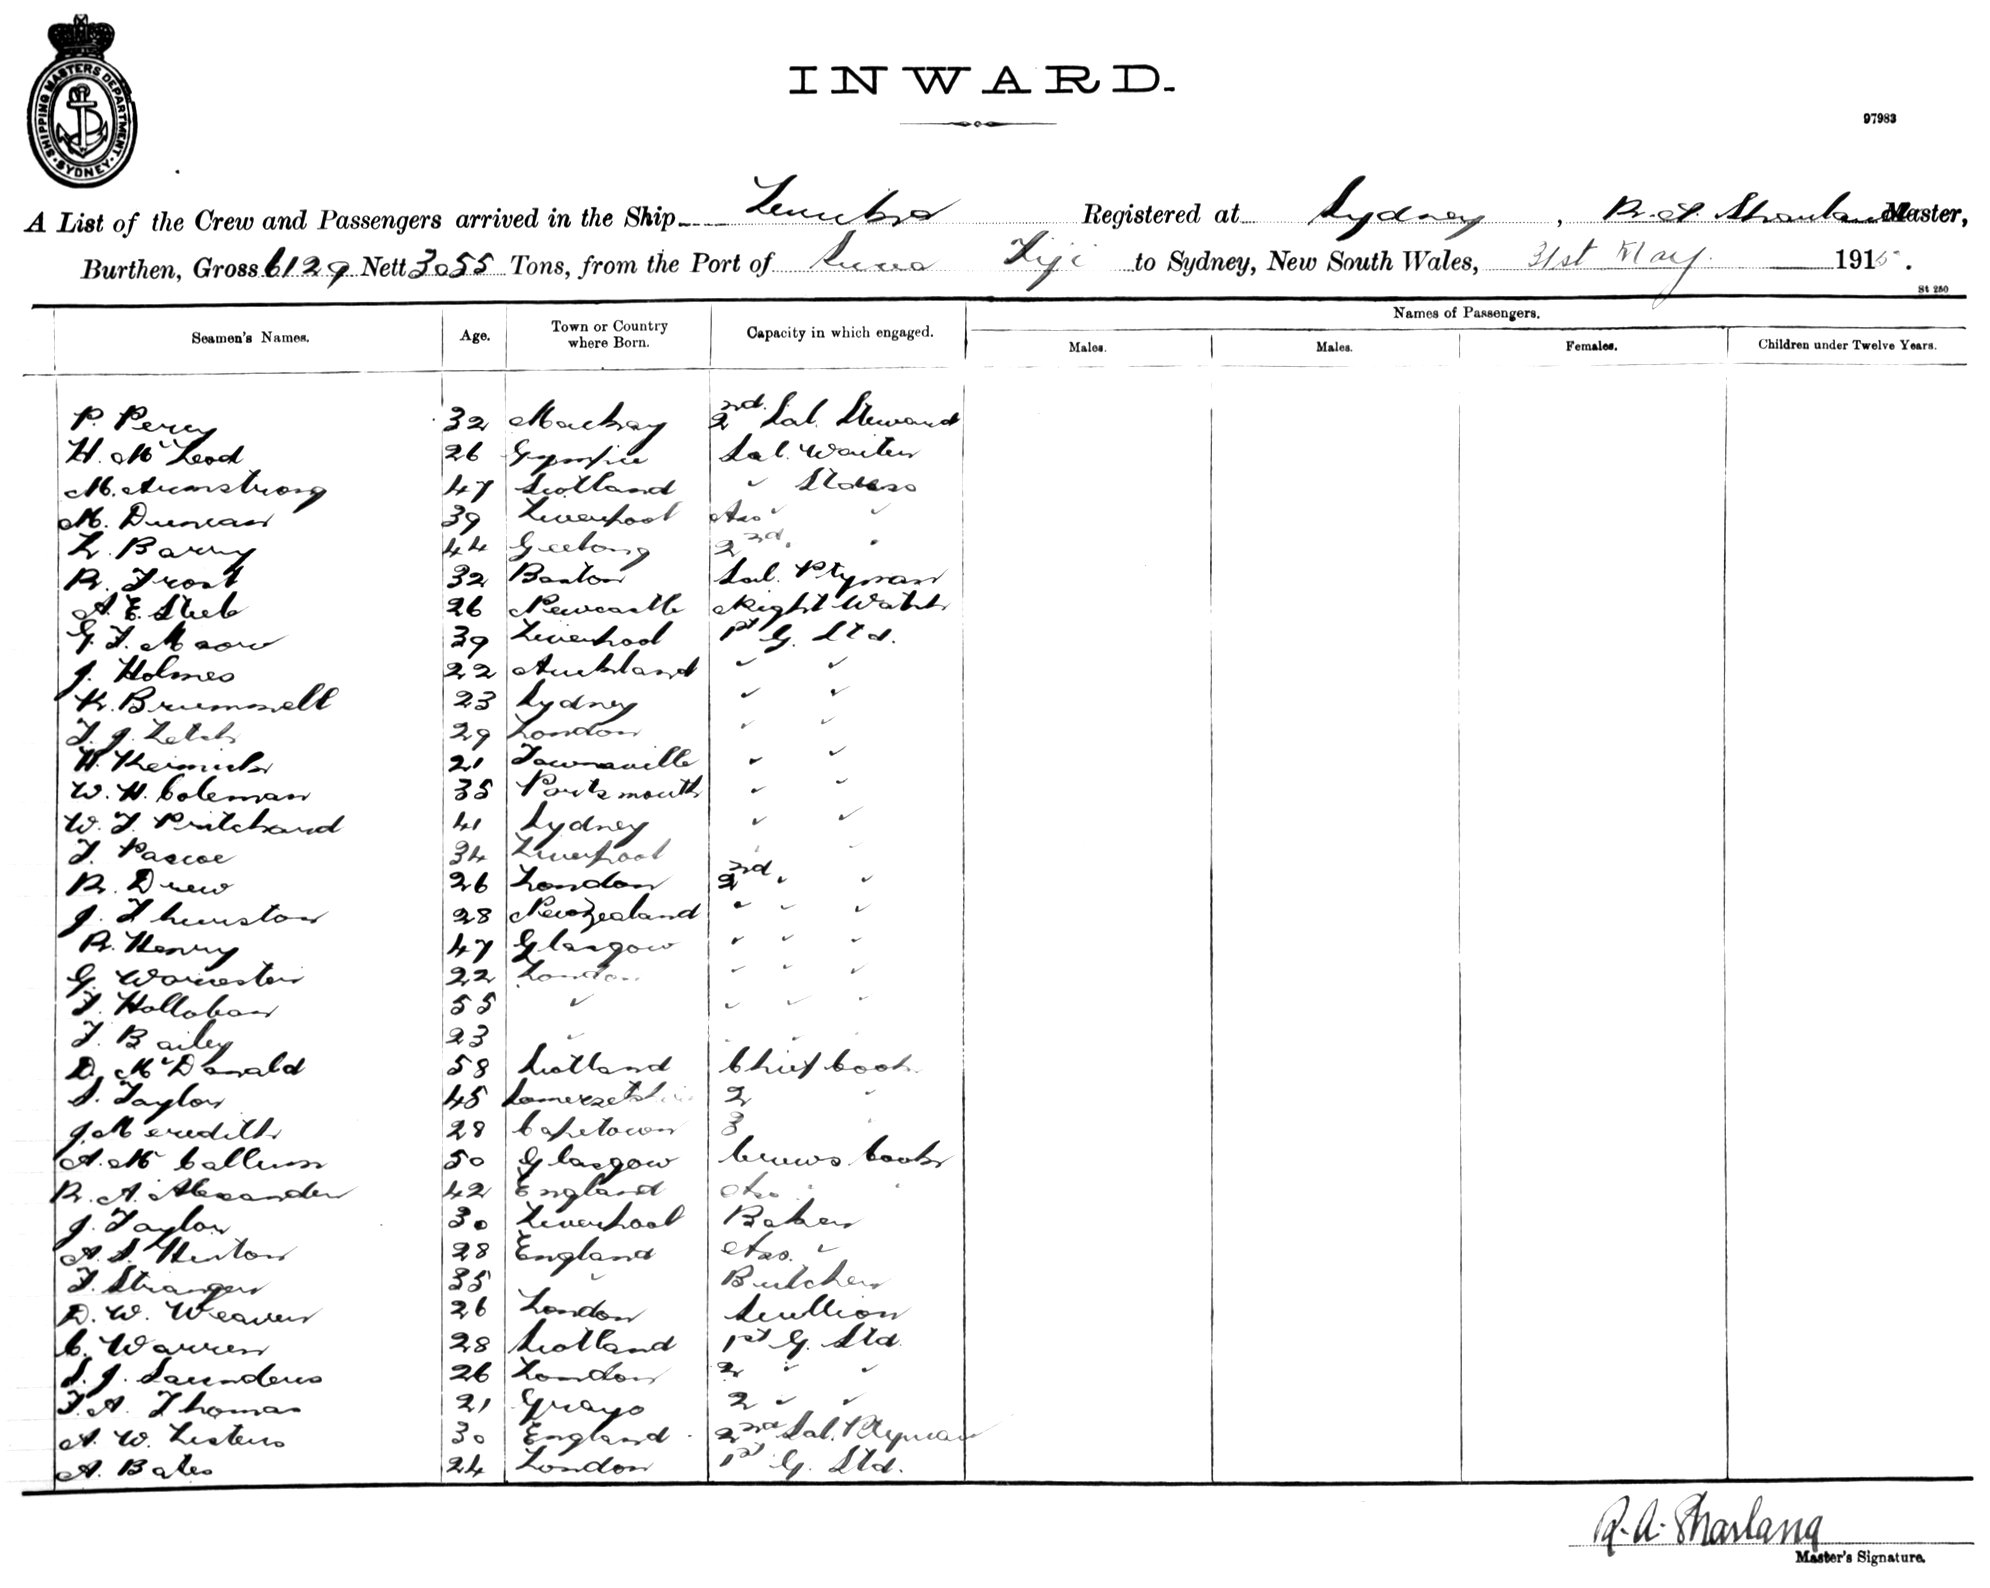 SHIPPING MASTERS DEPARTMENT. SYDNEY.
INWARD.
97983
A List of the Crew and Passengers arrived in the Ship Registered at Sydney, Master,
Burthen, Gross 6129 Nett 3055 Tons, from the Port of Suva Fiji to Sydney, New South Wales, 31st May 1915.
St 250
Seamen's Names. Age. Town or Country where Born. Capacity in which engaged. Names of Passengers.
Males. Males. Females. Children under Twelve Years.
P. Percy 32 Mackay 2nd. Sal. Steward
H. McLeod 26 Gympie Sal. Waiter
M. Armstrong 47 Scotland " Stdess
M. Duncan 39 Liverpool Ass " "
L. Barry 44 Geelong 2nd. "
R. Frost 32 Sal. Ptyman
A. E. Steb 26 Newcastle Night Watch
G. F. Moore 39 Liverpool 1st G. Std.
J. Holmes 22 Auckland " "
K. Brummell 23 Sydney " "
F. J. Letch 29 London " "
H. 21 Townsville " "
W. H. Coleman 35 Portsmouth " "
W. F. Pritchard 41 Sydney " "
F. Pascoe 34 Liverpool " "
R. Drew 26 London 2nd " "
J. Thurston 28 New Zealand " " "
R. Henry 47 Glasgow " " "
G. Worcester 22 London " " "
F. 55 " " " "
F. Bailey 23 " " " "
D. McDonald 58 Scotland Chief Cook
S. Taylor 45 2 "
J. Meredith 28 Capetown 3 "
A. McCallum 50 Glasgow Crews Cook
R. A. Alexander 42 England Ass " "
J. Taylor 30 Liverpool Baker
A. S. 28 England Ass. "
F. Stranger 35 " Butcher
D. W. Weaver 26 London Scullion
C. Warren 28 Scotland 1st G. Std.
S. J. Saunders 26 London 2 " "
F. A. Thomas 21 Grays 2 " "
A. W. Listers 30 England 2nd Sal. Ptyman
A. Bates 24 London 1st G. Std.
R. A. Sharland
Master's Signature.